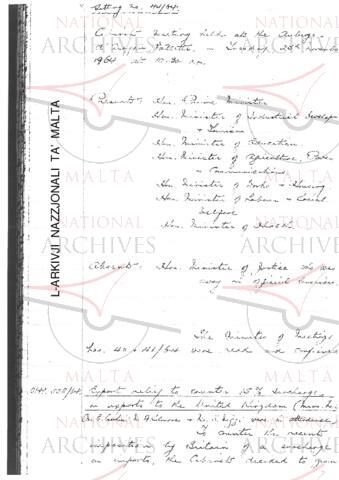 Sitting No. 42/64.
Cabinet meeting held at the Auberge
d'Aragon, Valletta, on Tuesday, 24th November
1964 at 10.30 a.m.
Present: Hon. Prime Minister
Hon. Minister of Industrial Develop
& Tourism
Hon. Minister of Education
Hon. Minister of Agriculture, Power
& Communications
Hon. Minister of Works & Housing
Hon. Minister of Labour & Social
Welfare
Hon. Minister of Health
Absent: Hon. Minister of Justice who was
away on official business
The Minutes of Meetings
Nos. 40 & 41/64 were read and confirmed
Export relief to counter 15% surcharge
on exports to the United Kingdom
were in attendance
To counter the recent
imposition by Britain of a surcharge
on imports, the Cabinet decided to grant
L-ARKIVJI NAZZJONALI TA' MALTA
NATIONAL
ARCHIVES
MALTA